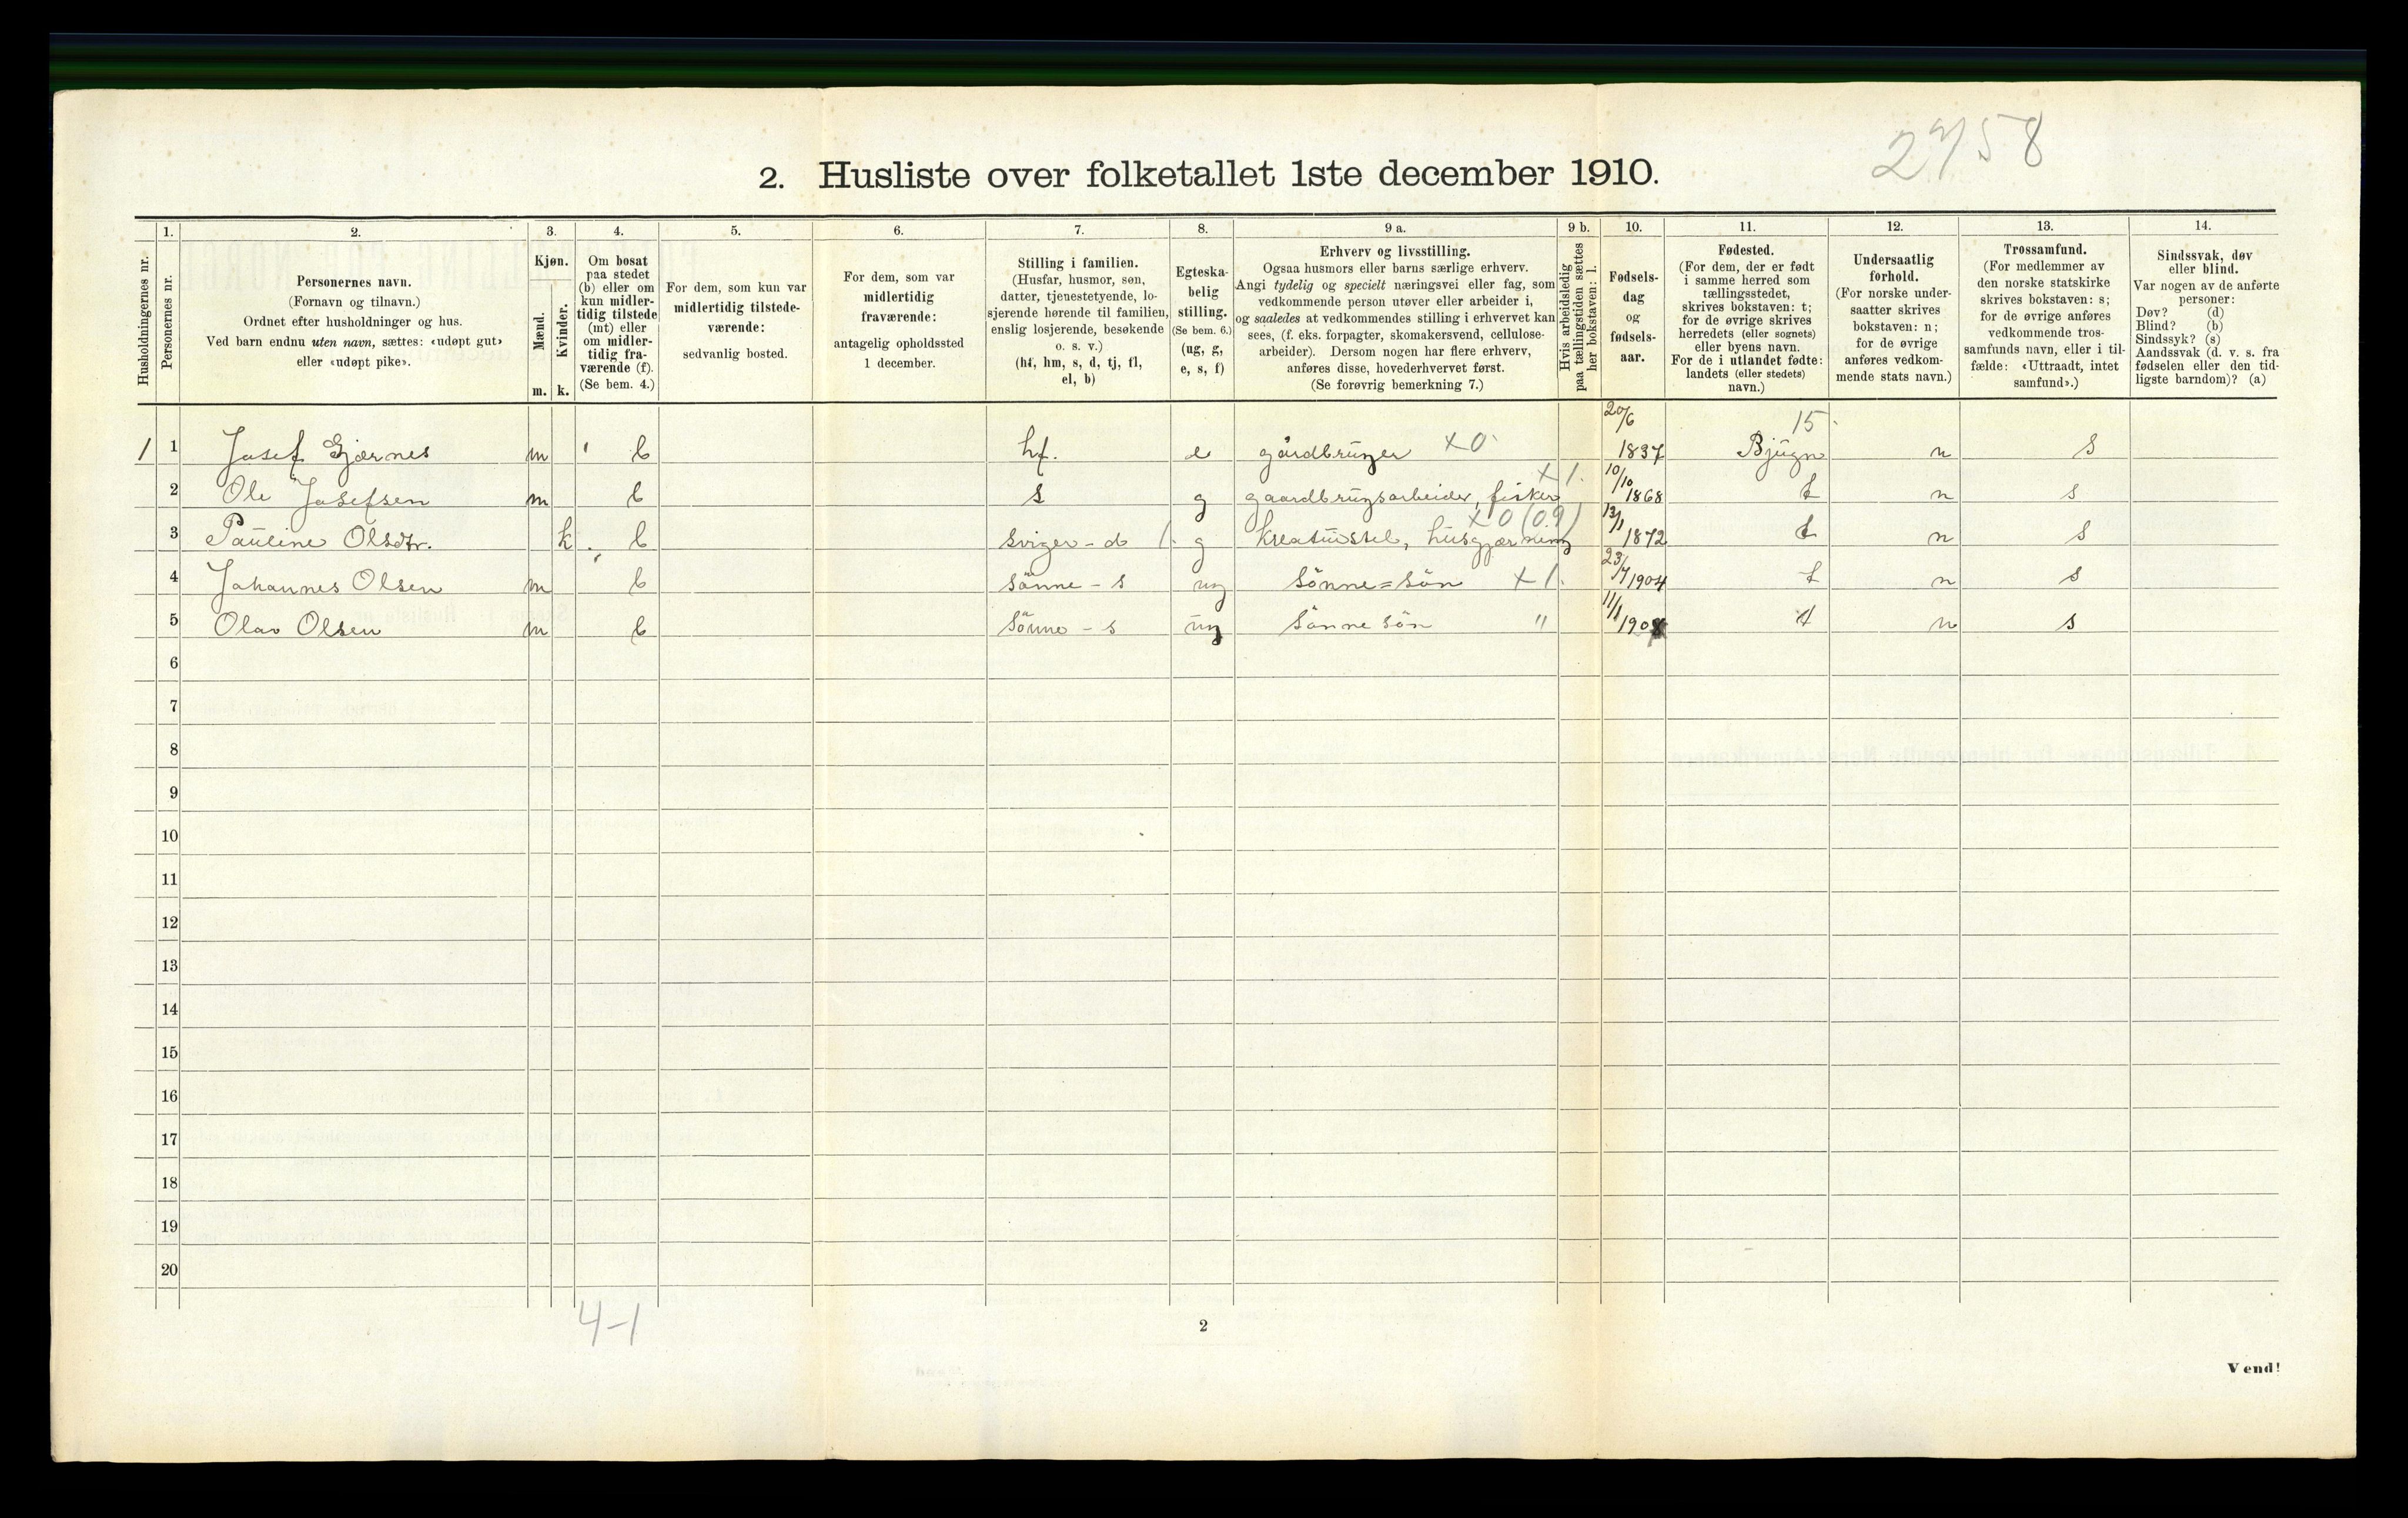 2758
2. Husliste over folketallet 1ste december 1910.
Husholdningernes nr.
1. Personernes nr.
2. Personernes navn.
(Fornavn og tilnavn.)
Ordnet efter husholdninger og hus.
Ved barn endnu uten navn, sættes: «udøpt gut»
eller «udøpt pike».
3. Kjøn.
Mænd. m.
Kvinder. k.
4. Om bosat
paa stedet
(b) eller om
kun midler-
tidig tilstede
(mt) eller
om midler-
tidig fra-
værende (f).
(Se bem. 4.)
5. For dem, som kun var
midlertidig tilstede-
værende:
sedvanlig bosted.
6. For dem, som var
midlertidig
fraværende:
antagelig opholdssted
1 december.
7. Stilling i familien.
(Husfar, husmor, søn,
datter, tjenestetyende, lo-
sjerende hørende til familien,
enslig losjerende, besøkende
o. s. v.)
(hf, hm, s, d, tj, fl,
el, b)
8. Egteska-
belig
stilling.
(Se bem. 6.)
(ug, g,
e, s, f)
9 a. Erhverv og livsstilling.
Ogsaa husmors eller barns særlige erhverv.
Angi tydelig og specielt næringsvei eller fag, som
vedkommende person utøver eller arbeider i,
og saaledes at vedkommendes stilling i erhvervet kan
sees, (f. eks. forpagter, skomakersvend, cellulose-
arbeider). Dersom nogen har flere erhverv,
anføres disse, hovederhvervet først.
(Se forøvrig bemerkning 7.)
9 b. Hvis arbeidsledig
paa tællingstiden sættes
her bokstaven: l.
10. Fødsels-
dag
og
fødsels-
aar.
11. Fødested.
(For dem, der er født
i samme herred som
tællingsstedet,
skrives bokstaven: t;
for de øvrige skrives
herredets (eller sognets)
eller byens navn.
For de i utlandet fødte:
landets (eller stedets)
navn.)
12. Undersaatlig
forhold.
(For norske under-
saatter skrives
bokstaven: n;
for de øvrige
anføres vedkom-
mende stats navn.)
13. Trossamfund.
(For medlemmer av
den norske statskirke
skrives bokstaven: s;
for de øvrige anføres
vedkommende tros-
samfunds navn, eller i til-
fælde: «Uttraadt, intet
samfund».)
14. Sindssvak, døv
eller blind.
Var nogen av de anførte
personer:
Døv? (d)
Blind? (b)
Sindssyk? (s)
Aandssvak (d. v. s. fra
fødselen eller den tid-
ligste barndom)? (a)
1 1 Josef Gjærnes m b hf. e gårdbruger x0 20/6 1837 15 Bjugn n s
2 Ole Josefsen m b s g gaardbrugsarbeider, fisker x1. 10/10 1868 t n s
3 Pauline Olsdtr. k b sviger-d g Kreaturstel, husgjærning x0 (0.9) 13/1 1872 t n s
4 Johannes Olsen m b sönne-s ug Sönne=sön x1. 23/7 1904 t n s
5 Olav Olsen m b Sönne-s ug Sönne sön " 11/1 190 t n s
6
7
8
9
10
11
12
13
14
15
16
17
18
19
20
4-1
2
Vend!